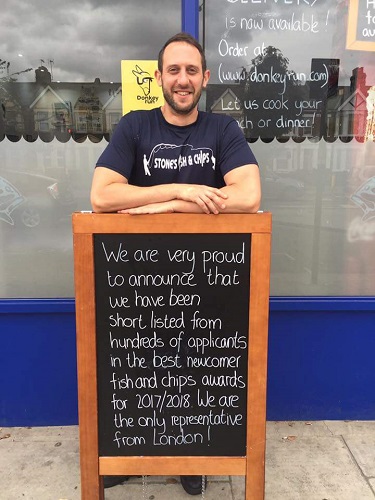 DELIVERY
is now available!
Order at
(www.donkeyrun.com)
Let us cook your
lunch or dinner!
Donkey
run
STONE'S FISH & CHIPS
We are very proud
to announce that
we have been
short listed from
hundreds of applicants
in the best newcomer
fish and chips awards
for 2017/2018. We are
the only representative
from London!